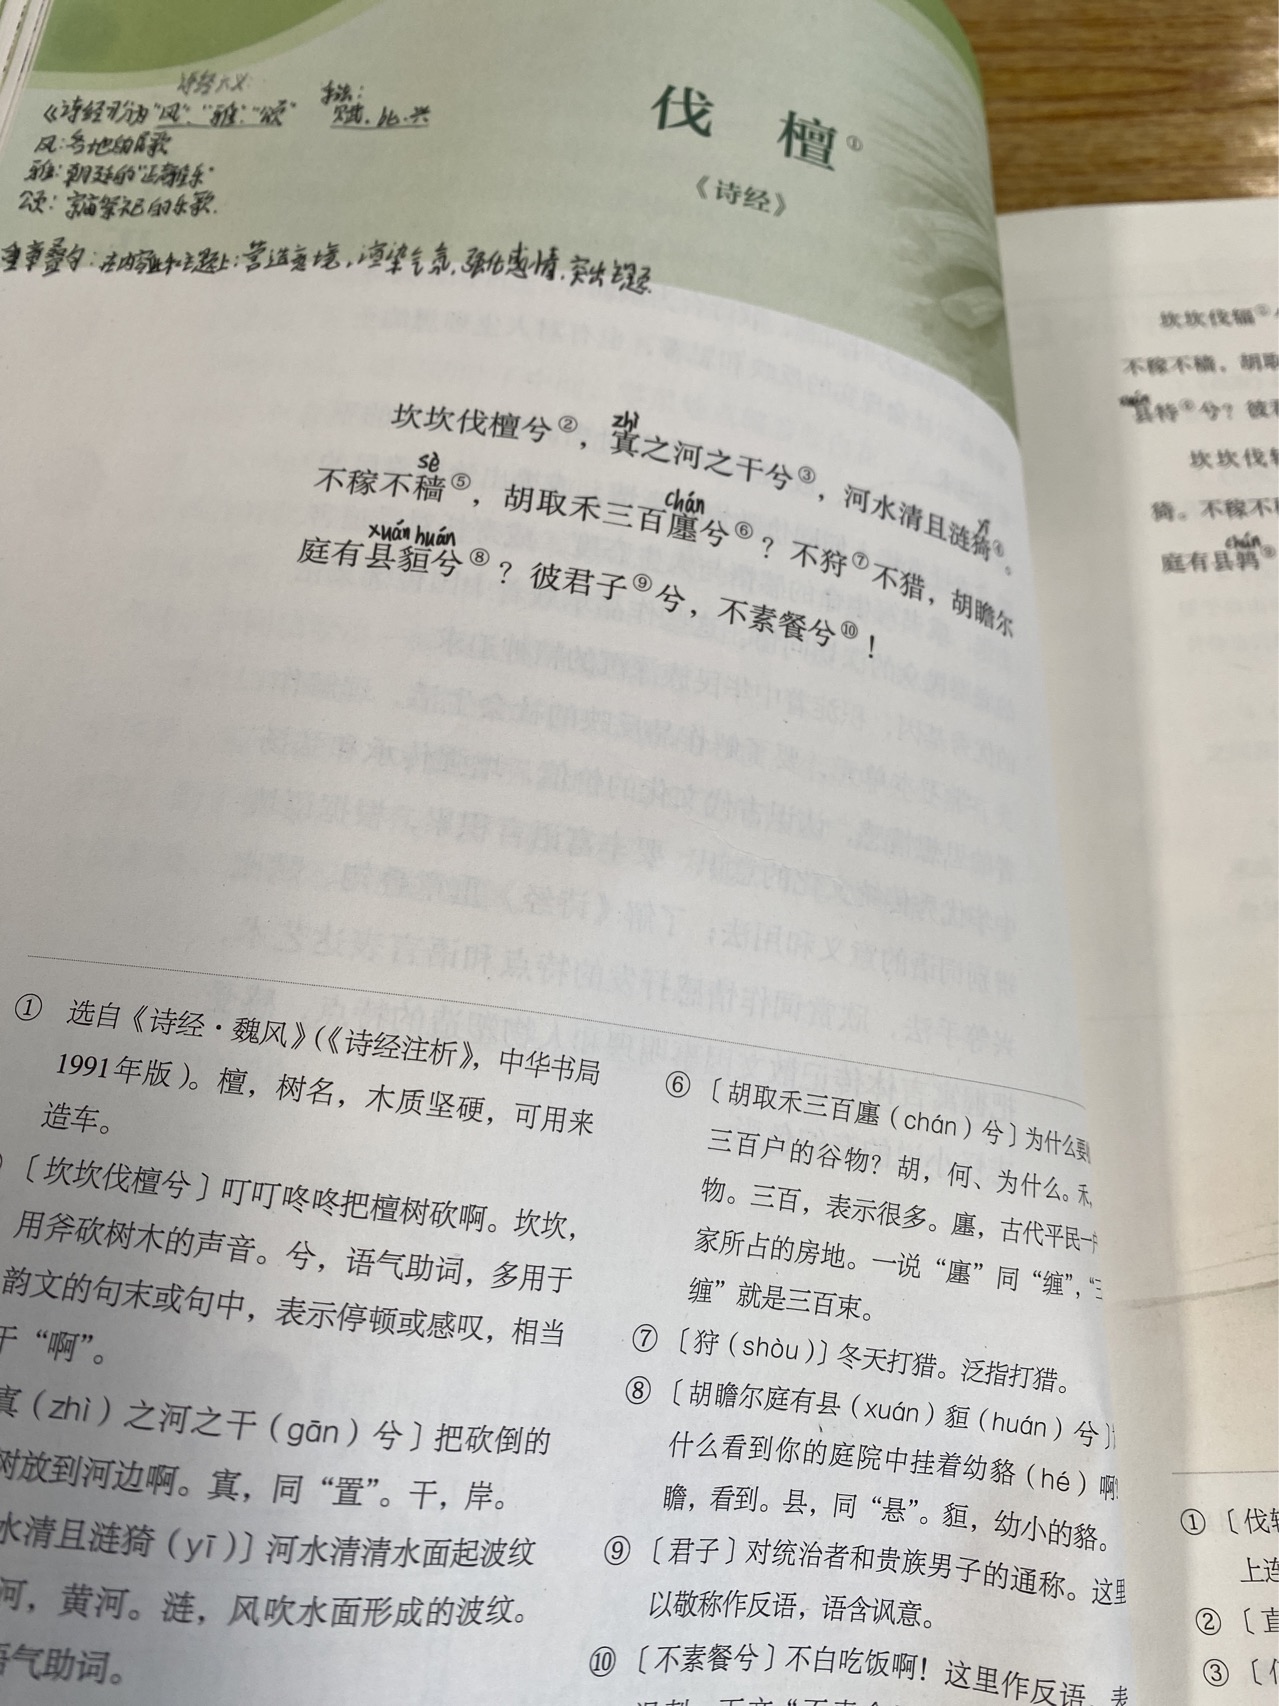 诗经六义:
《诗经》分为"风"、"雅"、"颂"
手法:
赋、比、兴
风:各地的民歌
雅:朝廷的"正声雅乐"
颂:宗庙祭祀的乐歌.
重章叠句:在内容和主题上:营造意境,渲染气氛,强化感情,突出主题.
伐 檀①
《诗经》
zhì
坎坎伐檀兮②,寘之河之干兮③,河水清且涟猗④。
sè chán yī
不稼不穑⑤,胡取禾三百廛兮⑥?不狩⑦不猎,胡瞻尔
xuán huán
庭有县貆兮⑧?彼君子⑨兮,不素餐兮⑩!
① 选自《诗经·魏风》(《诗经注析》,中华书局
1991年版)。檀,树名,木质坚硬,可用来
造车。
〔坎坎伐檀兮〕叮叮咚咚把檀树砍啊。坎坎,
用斧砍树木的声音。兮,语气助词,多用于
韵文的句末或句中,表示停顿或感叹,相当
于"啊"。
寘(zhì)之河之干(gān)兮〕把砍倒的
树放到河边啊。寘,同"置"。干,岸。
水清且涟猗(yī)〕河水清清水面起波纹
河,黄河。涟,风吹水面形成的波纹。
语气助词。
⑥〔胡取禾三百廛(chán)兮〕为什么要
三百户的谷物?胡,何、为什么。禾,
物。三百,表示很多。廛,古代平民一户
家所占的房地。一说"廛"同"缠","三
缠"就是三百束。
⑦〔狩(shòu)〕冬天打猎。泛指打猎。
⑧〔胡瞻尔庭有县(xuán)貆(huán)兮〕
什么看到你的庭院中挂着幼貉(hé)啊?
瞻,看到。县,同"悬"。貆,幼小的貉。
⑨〔君子〕对统治者和贵族男子的通称。这里
以敬称作反语,语含讽意。
⑩〔不素餐兮〕不白吃饭啊!这里作反语,表
坎坎伐辐①
不稼不穑,胡取
xuán
县特④兮?彼
坎坎伐
猗。不稼不
chún
庭有县鹑⑨
①〔伐
上连
②〔直
③〔